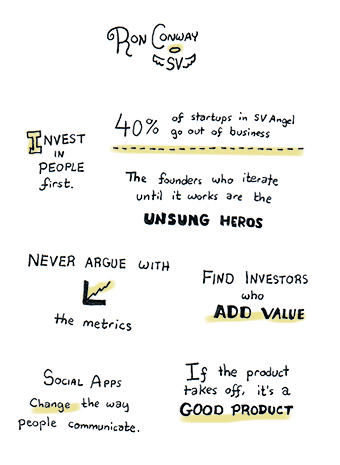 Ron Conway
SV
Invest
in
people
first.
40% of startups in SV Angel
go out of business
The founders who iterate
until it works are the
UNSUNG HEROS
NEVER ARGUE WITH
the metrics
FIND INVESTORS
who
ADD VALUE
SOCIAL APPS
Change the way
people communicate.
If the product
takes off, it's a
GOOD PRODUCT